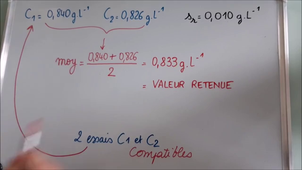 C₁ = 0,840 g.L⁻¹ C₂ = 0,826 g.L⁻¹ sᵣ = 0,010 g.L⁻¹
moy = (0,840 + 0,826) / 2 = 0,833 g.L⁻¹
= VALEUR RETENUE
2 essais C1 et C2
Compatibles